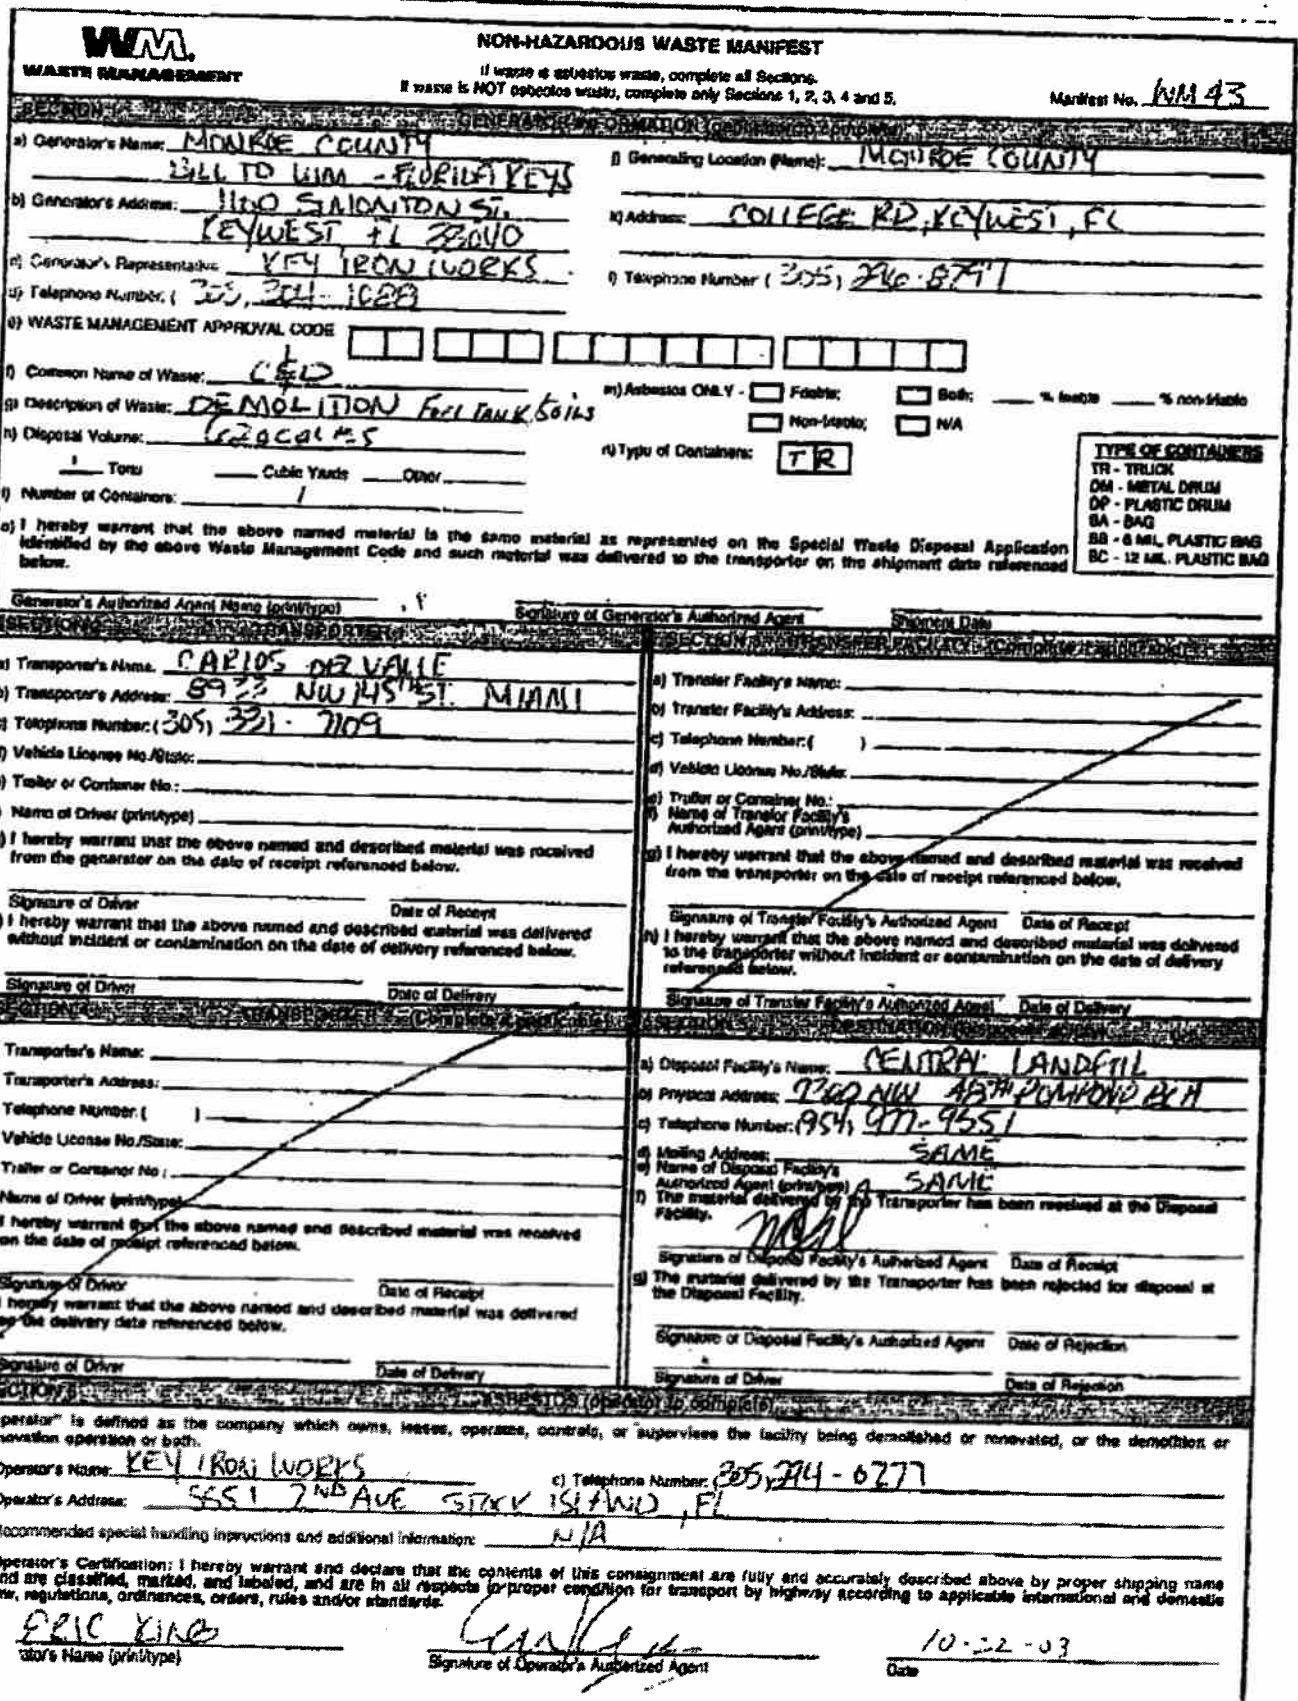 WM.
WASTE MANAGEMENT
NON-HAZARDOUS WASTE MANIFEST
If waste is asbestos waste, complete all Sections.
If waste is NOT asbestos waste, complete only Sections 1, 2, 3, 4 and 5.
Manifest No. WM 43
SECTION 1 GENERATOR INFORMATION (generator to complete)
a) Generator's Name: MONROE COUNTY
BILL TO WM - FLORIDA KEYS
b) Generator's Address: 1100 SIMONTON ST.
KEYWEST, FL 33040
c) Generator's Representative KEY IRON WORKS
d) Telephone Number: (305)
j) Generating Location (Name): MONROE COUNTY
k) Address: COLLEGE RD, KEYWEST, FL
l) Telephone Number (305) 296-8797
e) WASTE MANAGEMENT APPROVAL CODE
f) Common Name of Waste: C&D
g) Description of Waste: DEMOLITION FUEL TANK SOILS
h) Disposal Volume:
Tons Cubic Yards Other
i) Number of Containers: 1
m) Asbestos ONLY - Friable; Both; % friable % non-friable
Non-friable; N/A
n) Type of Containers: TR
TYPE OF CONTAINERS
TR - TRUCK
DM - METAL DRUM
DP - PLASTIC DRUM
BA - BAG
BB - 6 MIL. PLASTIC BAG
BC - 12 MIL. PLASTIC BAG
o) I hereby warrant that the above named material is the same material as represented on the Special Waste Disposal Application
identified by the above Waste Management Code and such material was delivered to the transporter on the shipment date referenced
below.
Generator's Authorized Agent Name (print/type) Signature of Generator's Authorized Agent Shipment Date
TRANSPORTER
a) Transporter's Name. CARLOS DEL VALLE
b) Transporter's Address: 8933 NW 145TH ST. MIAMI
c) Telephone Number: (305) 331-7109
d) Vehicle License No./State:
e) Trailer or Container No.:
Name of Driver (print/type)
) I hereby warrant that the above named and described material was received
from the generator on the date of receipt referenced below.
Signature of Driver Date of Receipt
) I hereby warrant that the above named and described material was delivered
without incident or contamination on the date of delivery referenced below.
Signature of Driver Date of Delivery
SECTION 3 TRANSFER FACILITY (Complete if applicable)
a) Transfer Facility's Name:
b) Transfer Facility's Address:
c) Telephone Number: ( )
d) Vehicle License No./State:
e) Trailer or Container No.:
f) Name of Transfer Facility's
Authorized Agent (print/type)
g) I hereby warrant that the above named and described material was received
from the transporter on the date of receipt referenced below.
Signature of Transfer Facility's Authorized Agent Date of Receipt
h) I hereby warrant that the above named and described material was delivered
to the transporter without incident or contamination on the date of delivery
referenced below.
Signature of Transfer Facility's Authorized Agent Date of Delivery
SECTION 4 TRANSPORTER 2 (Complete if applicable)
Transporter's Name:
Transporter's Address:
Telephone Number: ( )
Vehicle License No./State:
Trailer or Container No:
Name of Driver (print/type)
I hereby warrant that the above named and described material was received
on the date of receipt referenced below.
Signature of Driver Date of Receipt
I hereby warrant that the above named and described material was delivered
on the delivery date referenced below.
Signature of Driver Date of Delivery
SECTION 5 DESTINATION
a) Disposal Facility's Name: CENTRAL LANDFILL
b) Physical Address: NW 48TH POMPANO BCH
c) Telephone Number: (954) 977-9551
d) Mailing Address: SAME
e) Name of Disposal Facility's
Authorized Agent (print/type) SAME
f) The material delivered by the Transporter has been received at the Disposal
Facility.
Signature of Disposal Facility's Authorized Agent Date of Receipt
g) The material delivered by the Transporter has been rejected for disposal at
the Disposal Facility.
Signature of Disposal Facility's Authorized Agent Date of Rejection
Signature of Driver Date of Rejection
SECTION 6 ASBESTOS (operator to complete)
perator" is defined as the company which owns, leases, operates, controls, or supervises the facility being demolished or renovated, or the demolition or
novation operation or both.
Operator's Name: KEY IRON WORKS
c) Telephone Number: (305) 294-0277
Operator's Address: 5651 2ND AVE STOCK ISLAND, FL
Recommended special handling instructions and additional information: N/A
Operator's Certification: I hereby warrant and declare that the contents of this consignment are fully and accurately described above by proper shipping name
and are classified, marked, and labeled, and are in all respects in proper condition for transport by highway according to applicable international and domestic
law, regulations, ordinances, orders, rules and/or standards.
ERIC KING
10-22-03
ator's Name (print/type) Signature of Operator's Authorized Agent Date